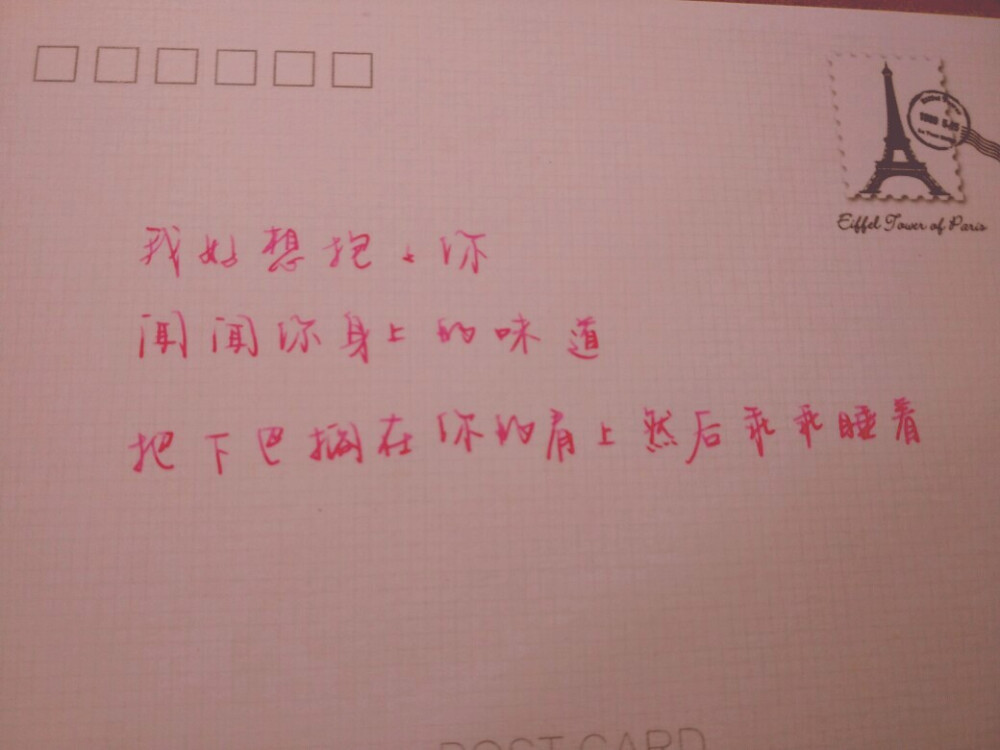 Eiffel Tower of Paris
我好想抱々你
闻闻你身上的味道
把下巴搁在你的肩上然后乖乖睡着
POST CARD